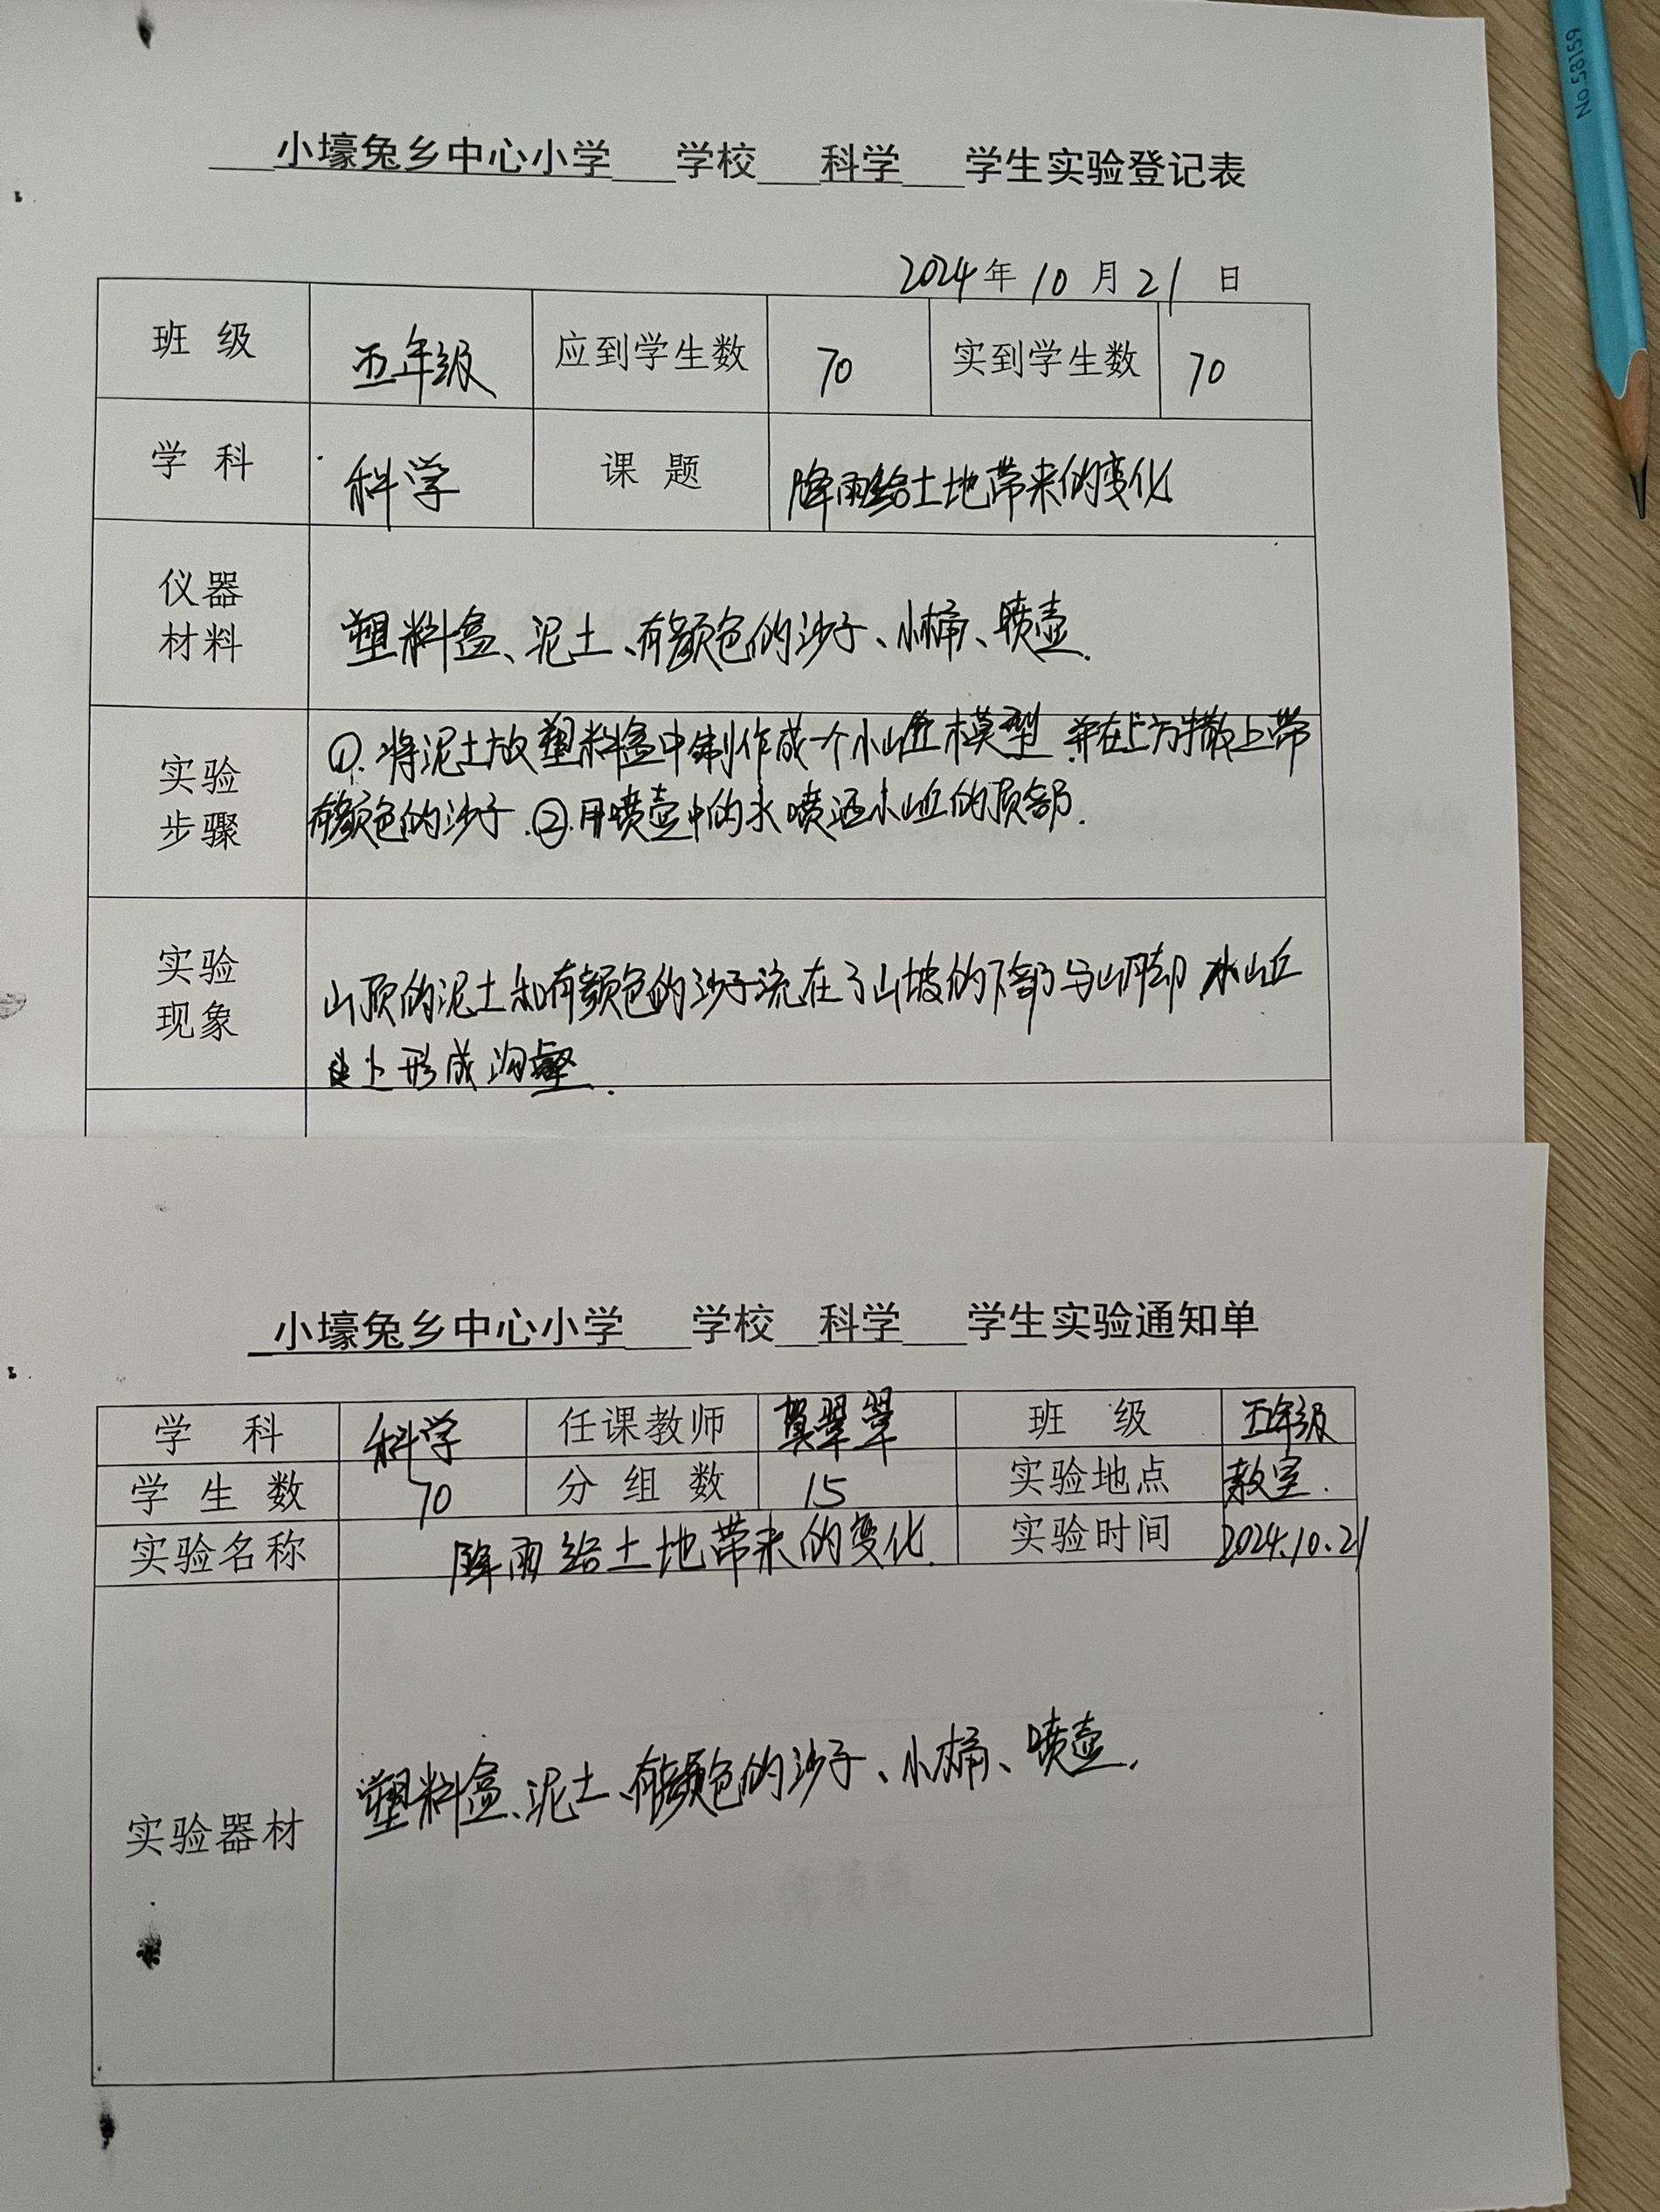 小壕兔乡中心小学 学校 科学 学生实验登记表
2024年10月21日
班级 五年级 应到学生数 70 实到学生数 70
学科 科学 课题 降雨给土地带来的变化
仪器
材料
塑料盒、泥土、有颜色的沙子、小桶、喷壶.
实验
步骤
①.将泥土放塑料盒中制作成一个小山丘模型.并在上方撒上带
有颜色的沙子.②.用喷壶中的水喷洒小山丘的顶部.
实验
现象
山顶的泥土和有颜色的沙子流在了山坡的下部与山脚.小山丘
上形成沟壑.
小壕兔乡中心小学 学校 科学 学生实验通知单
学科 科学 任课教师 翠翠 班级 五年级
学生数 70 分组数 15 实验地点 教室.
实验名称 降雨给土地带来的变化. 实验时间 2024.10.21
实验器材 塑料盒、泥土、有颜色的沙子、小桶、喷壶.
No.58159